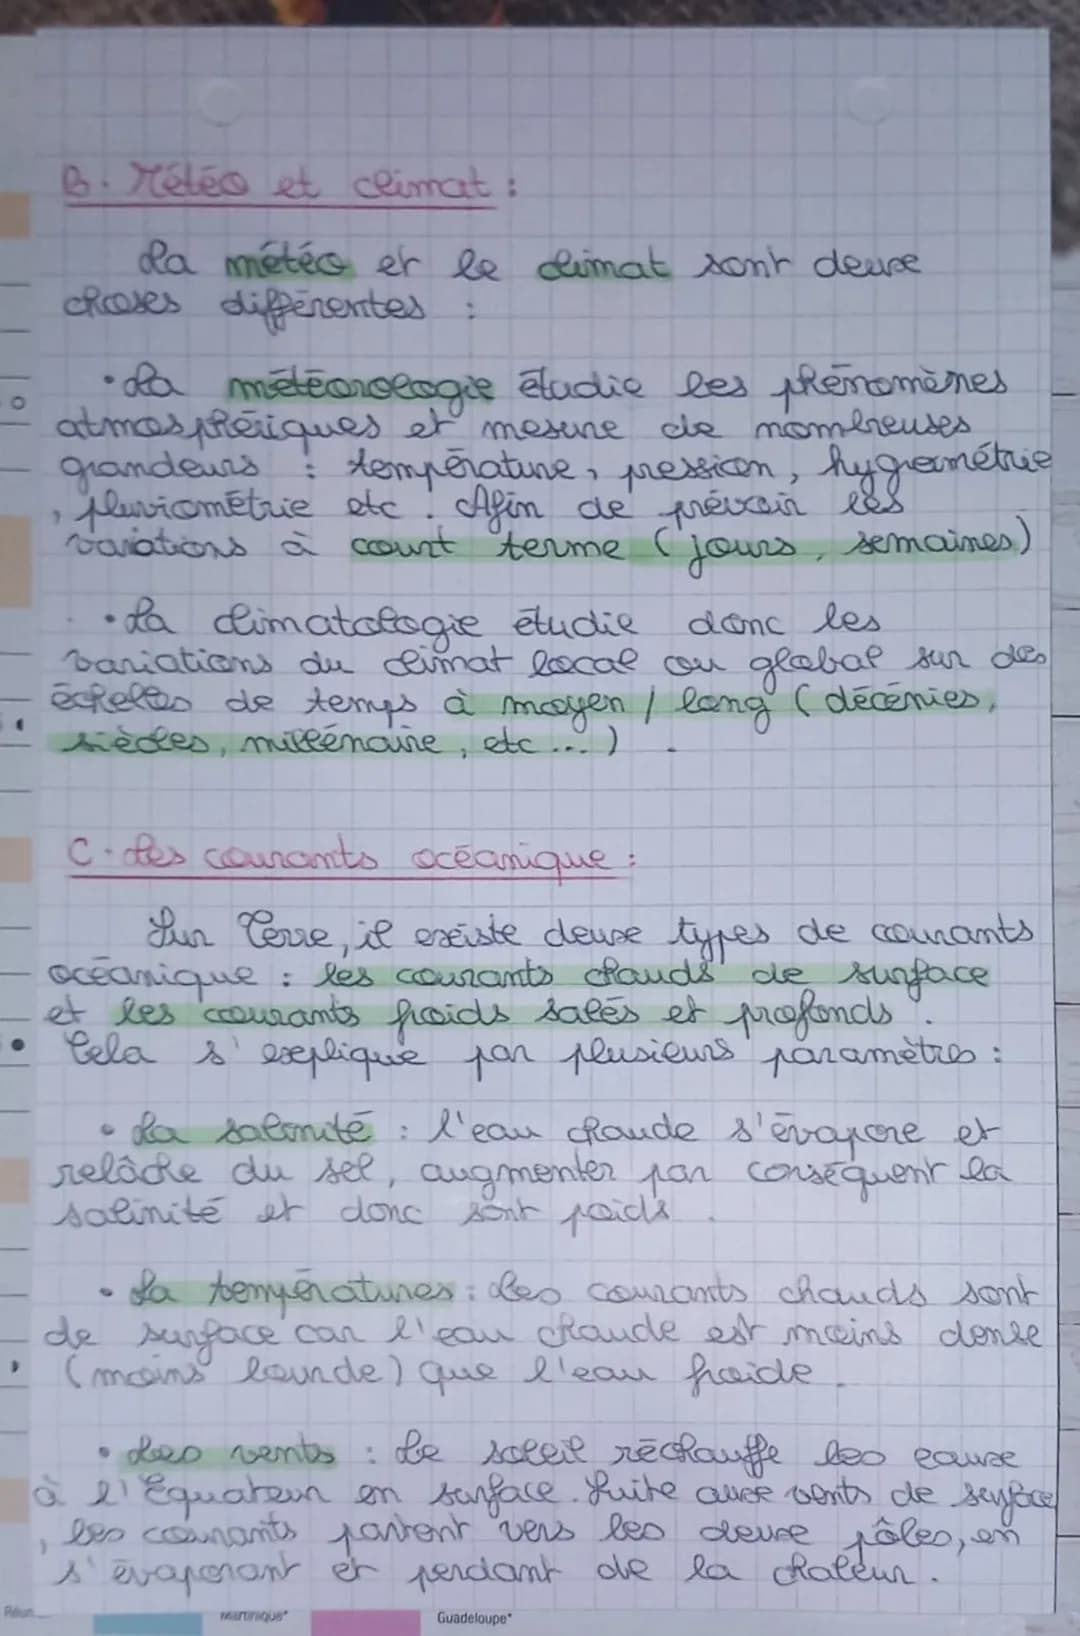 B. Météo et climat :
La météo et le climat sont deux
choses différentes :
• La météorologie étudie les phénomènes
atmosphériques et mesure de nombreuses
grandeurs : température, pression, hygrométrie
, pluviométrie etc. Afin de prévoir les
variations à court terme (jours, semaines)
• La climatologie étudie donc les
variations du climat local ou global sur des
échelles de temps à moyen / long (décénies,
siècles, millénaire, etc ...).
C. Les courants océanique :
Sur Terre, il existe deux types de courants
océanique : les courants chauds de surface
et les courants froids salés et profonds.
Cela s'explique par plusieurs paramètres :
• La salinité : l'eau chaude s'évapore et
relâche du sel, augmenter par conséquent la
salinité et donc sont poids.
• La températures : Les courants chauds sont
de surface car l'eau chaude est moins dense
(moins lourde) que l'eau froide.
• Les vents : Le soleil réchauffe les eaux
à l'Equateur en surface. Suite aux vents de surface
, les courants partent vers les deux pôles, en
s'évaporant et perdant de la chaleur.
Martinique*
Guadeloupe*